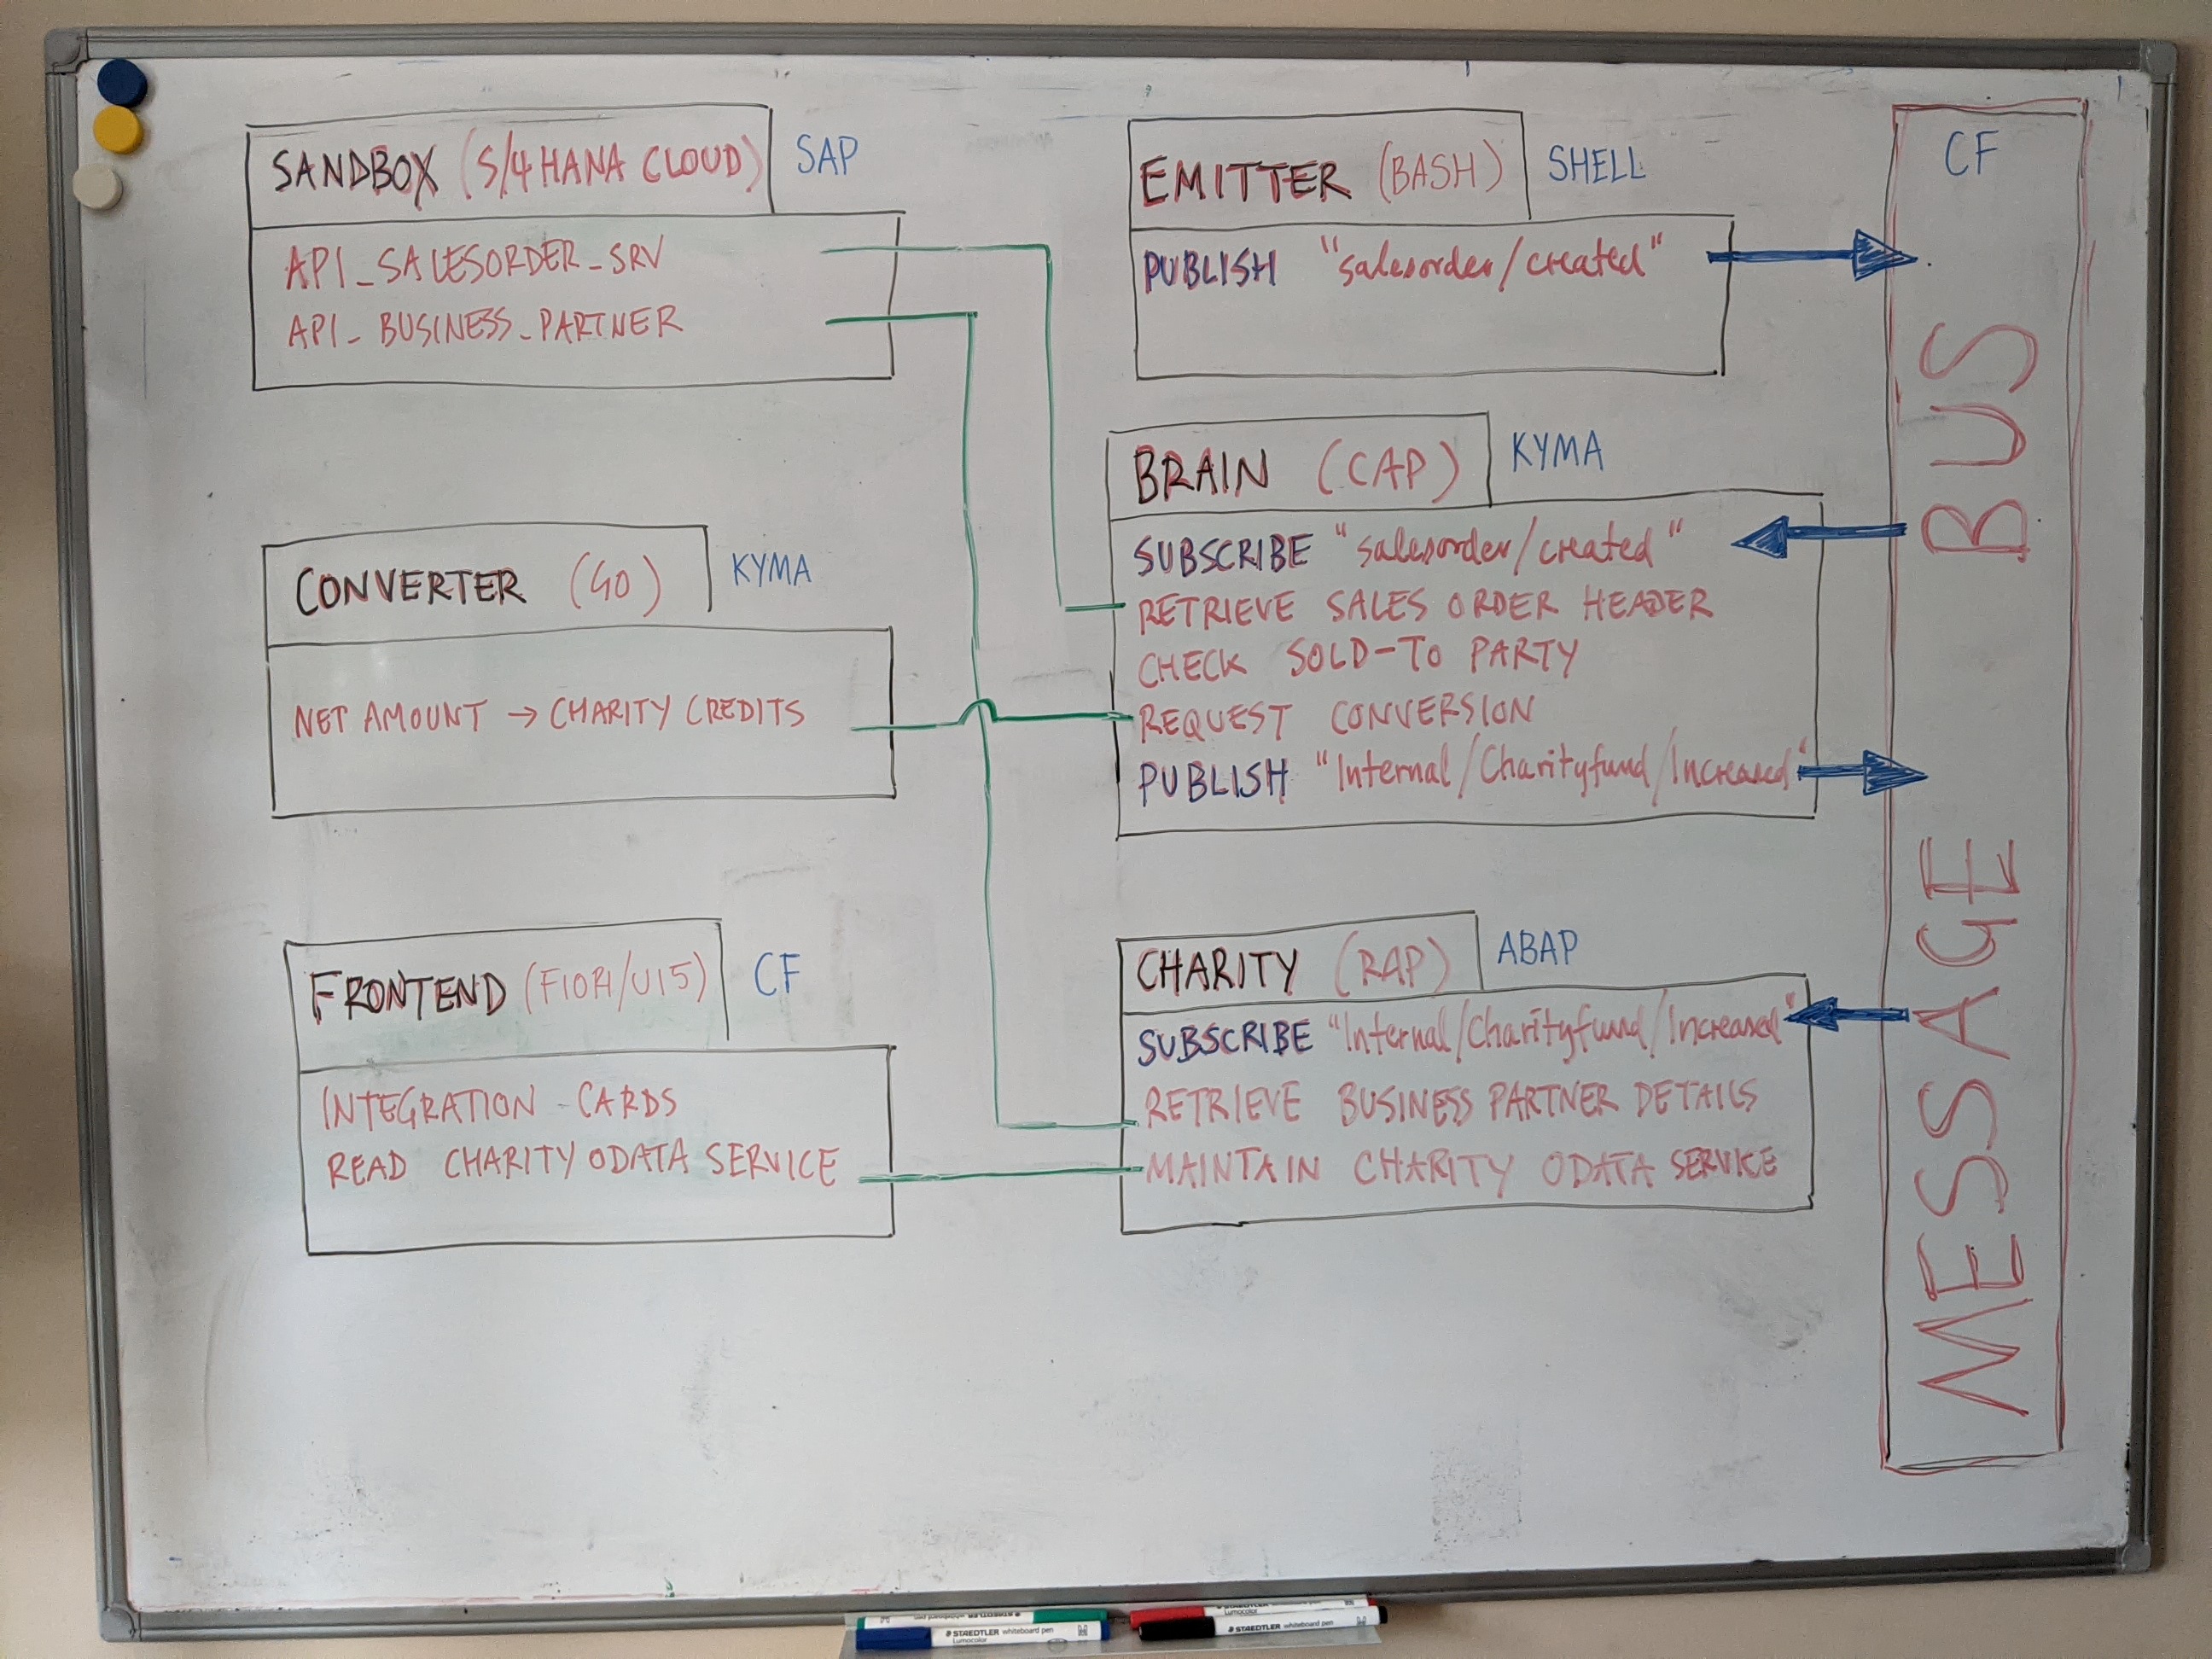 SANDBOX (S/4 HANA CLOUD) SAP
API_SALESORDER_SRV
API_BUSINESS_PARTNER
CONVERTER (GO) KYMA
NET AMOUNT → CHARITY CREDITS
FRONTEND (FIORI/UI5) CF
INTEGRATION CARDS
READ CHARITY ODATA SERVICE
EMITTER (BASH) SHELL
PUBLISH "salesorder/created"
BRAIN (CAP) KYMA
SUBSCRIBE "salesorder/created"
RETRIEVE SALES ORDER HEADER
CHECK SOLD-TO PARTY
REQUEST CONVERSION
PUBLISH "Internal/Charityfund/Increased"
CHARITY (RAP) ABAP
SUBSCRIBE "Internal/Charityfund/Increased"
RETRIEVE BUSINESS PARTNER DETAILS
MAINTAIN CHARITY ODATA SERVICE
CF
MESSAGE BUS
STAEDTLER whiteboard pen
STAEDTLER whiteboard pen
Lumocolor
Lumocolor
STAEDTLER whiteboard pen